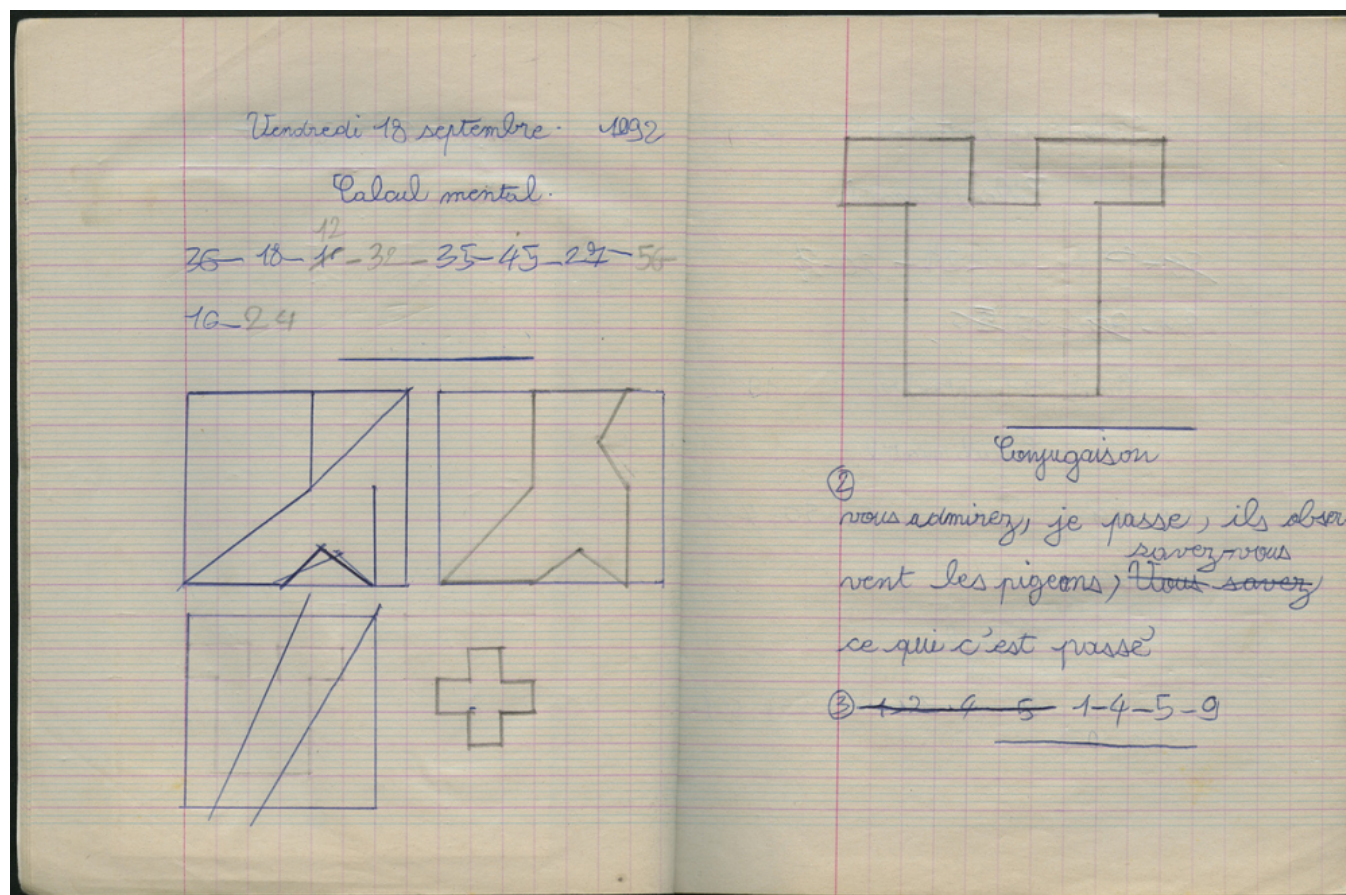 Vendredi 18 septembre. 1992
Calcul mental.
12
36 - 18 - - 32 - 35 - 45 - 27 - 56
16 - 24
Conjugaison
②
vous admirez, je passe, ils obser
savez-vous
vent les pigeons, Vous savez
ce qui c'est passé
③ 1 2 4 5 1-4-5-9